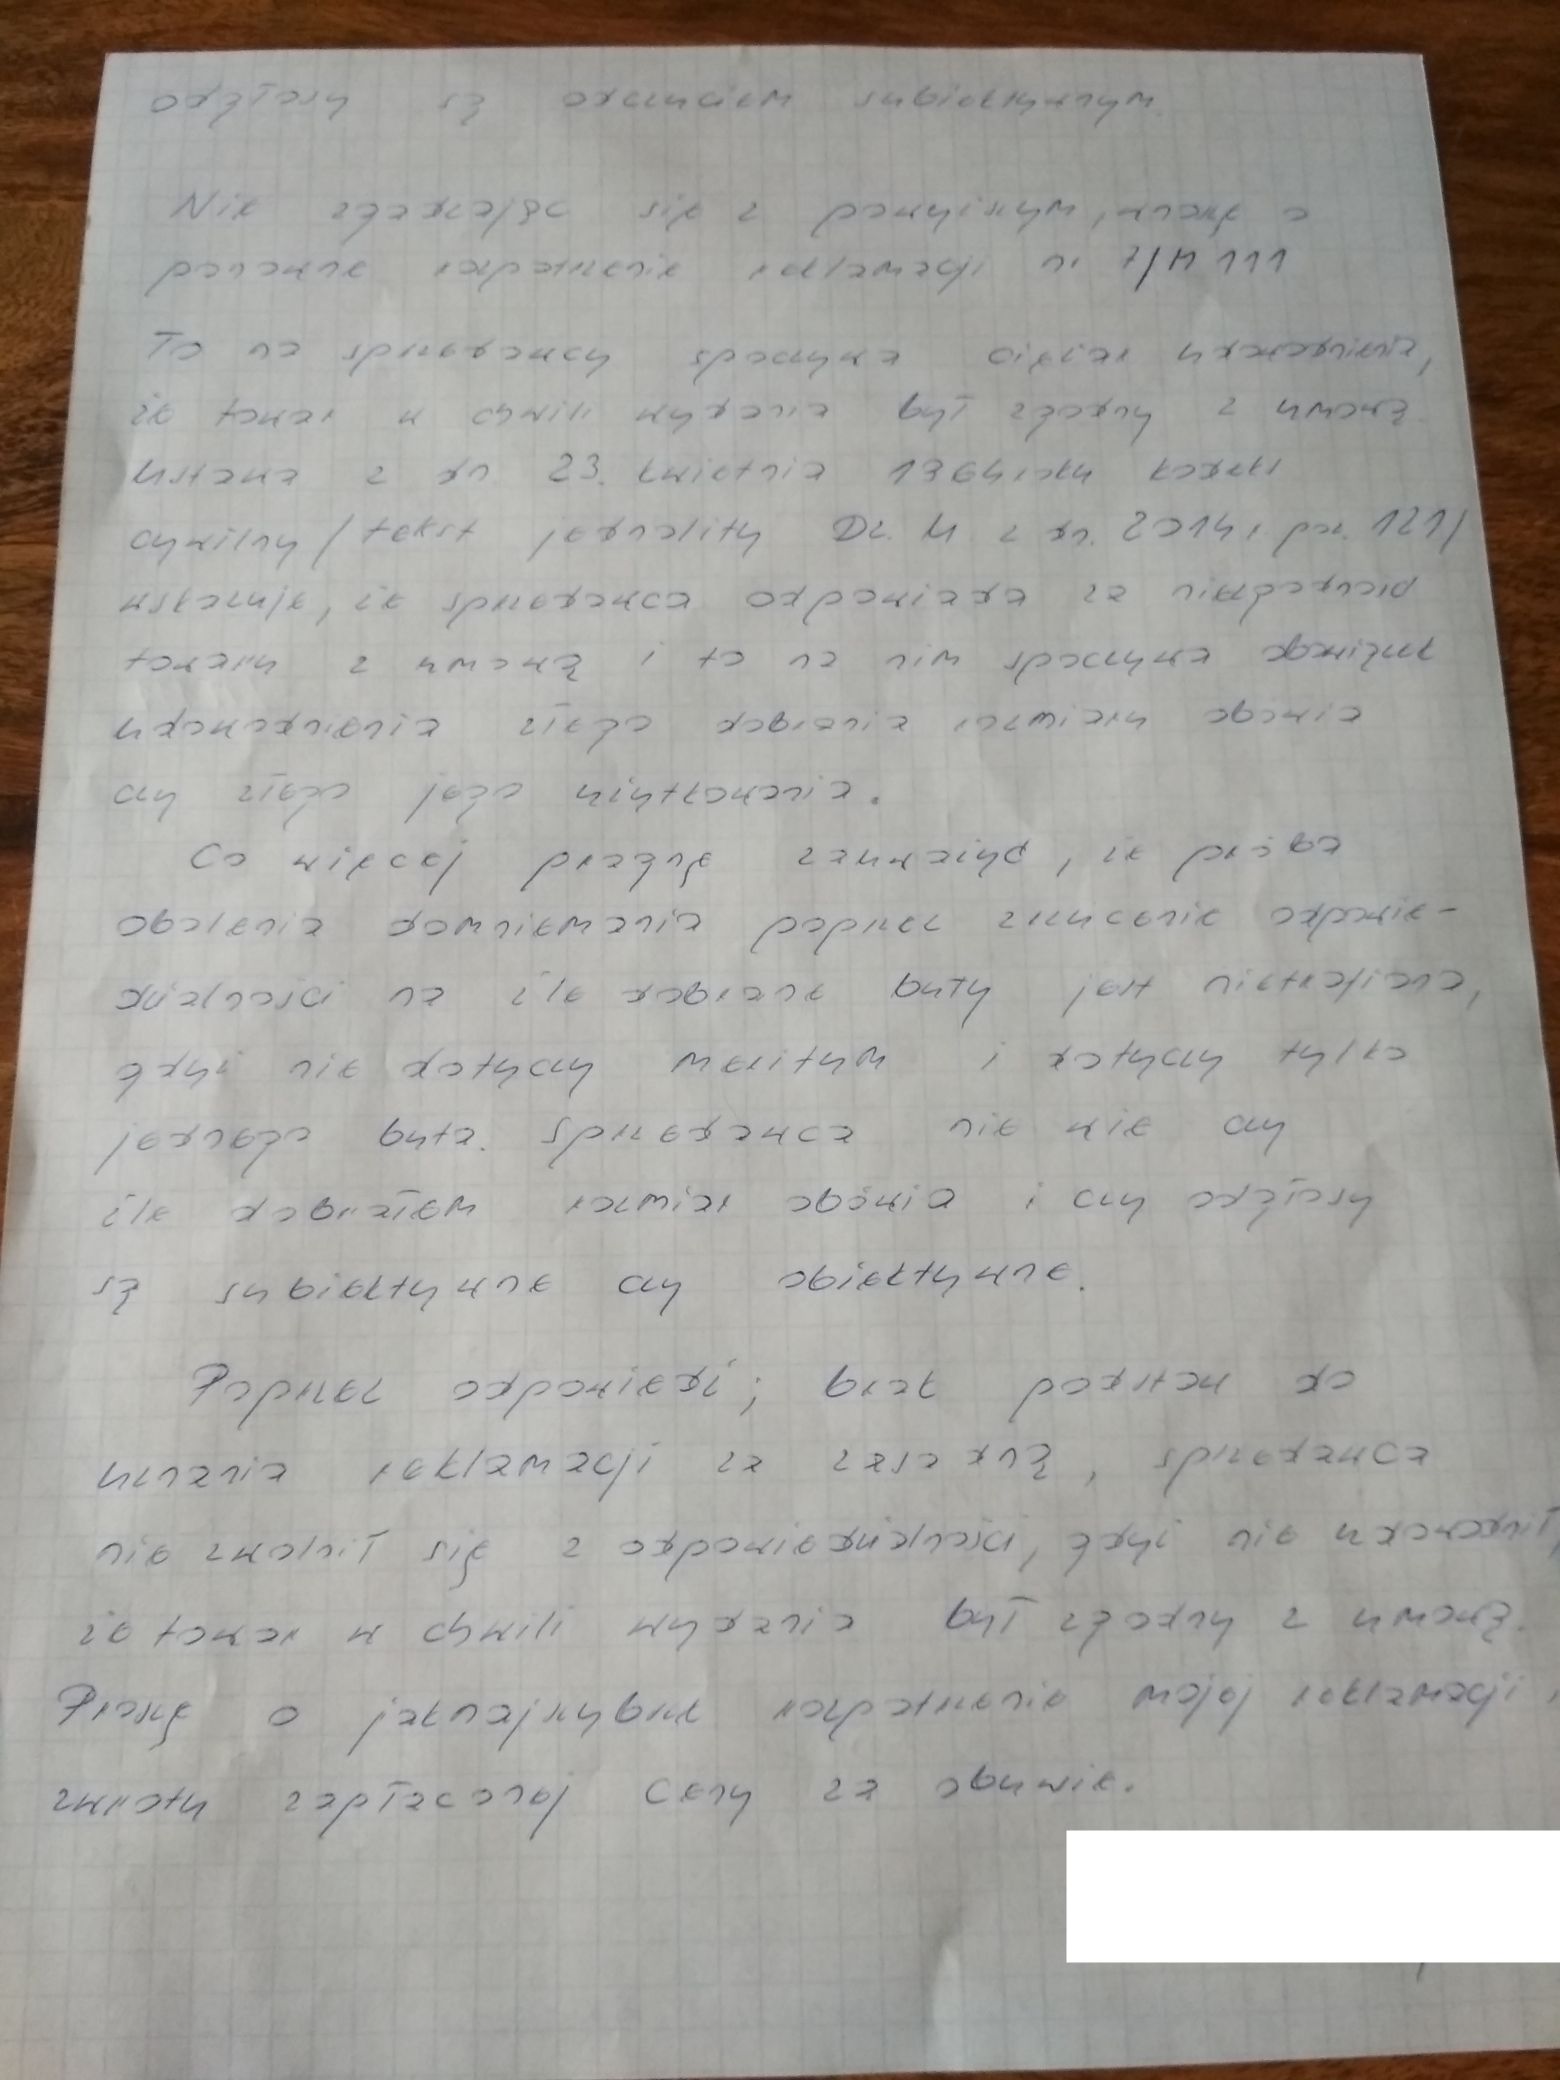 odgłosy są odczuciem subiektywnym.
Nie zgadzając się z powyższym, wnoszę o
ponowne rozpatrzenie reklamacji nr 7/M 111
To na sprzedawcy spoczywa ciężar udowodnienia,
że towar w chwili wydania był zgodny z umową.
Ustawa z dn 23. kwietnia 1964 roku kodeks
cywilny / tekst jednolity Dz. U. z dn. 2014 r. poz. 121/
wskazuje, że sprzedawca odpowiada za niezgodność
towaru z umową i to na nim spoczywa obowiązek
udowodnienia złego dobrania rozmiaru obuwia
czy złego jego użytkowania.
Co więcej pragnę zauważyć, że próba
obalenia domniemania poprzez zrzucenie odpowie-
dzialności na źle dobrane buty jest nietrafiona,
gdyż nie dotyczy meritum i dotyczy tylko
jednego buta. Sprzedawca nie wie czy
źle dobrałem rozmiar obówia i czy odgłosy
są subiektywne czy obiektywne.
Poprzez odpowiedź; brak podstaw do
uznania reklamacji za zasadną, sprzedawca
nie zwolnił się z odpowiedzialności, gdyż nie udowodnił,
że towar w chwili wydania był zgodny z umową.
Proszę o jaknajszybsze rozpatrzenie mojej reklamacji i
zwrotu zapłaconej ceny za obuwie.